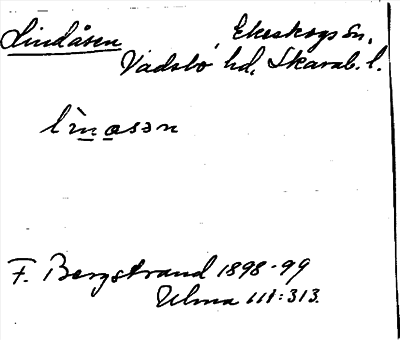 Lindåsen, Ekeskogs sn,
Vadsbo hd, Skarab. l.
lìnasən
F. Bergstrand 1898-99
Ulma 111:313.